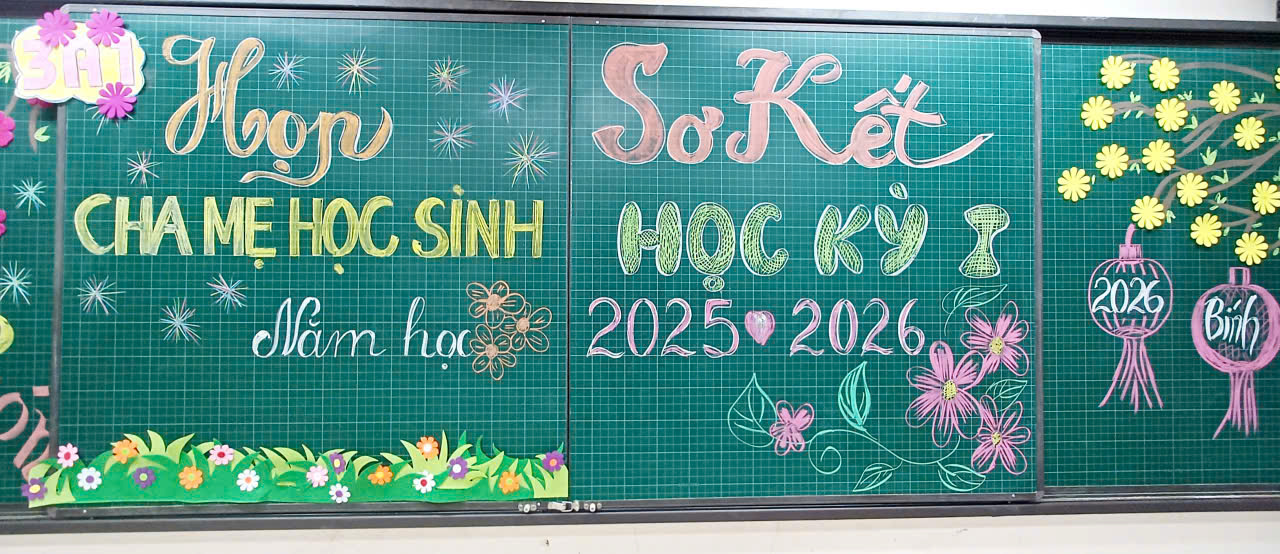 3A1
Họp
CHA MẸ HỌC SINH
Năm học
Sơ Kết
HỌC KỲ I
2025 2026
2026
Bính